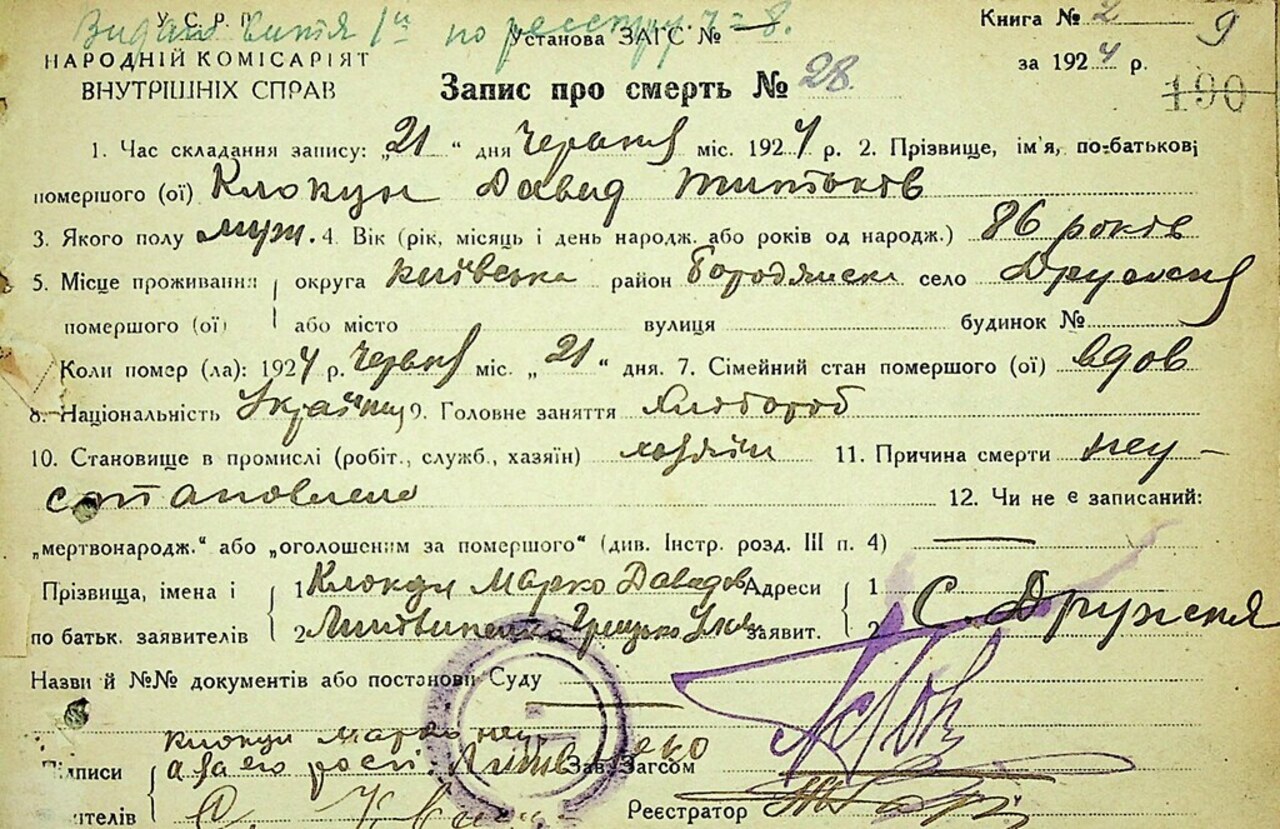 У.С.Р.Р.
по реєстру
Установа ЗАГС №
Книга № 2
9
НАРОДНІЙ КОМІСАРІЯТ
ВНУТРІШНІХ СПРАВ
за 1924 р.
190
Запис про смерть № 28.
1. Час складання запису: „21“ дня Червня міс. 1924 р. 2. Прізвище, ім'я, по-батькові
помершого (ої) Клокун Давид
3. Якого полу муж. 4. Вік (рік, місяць і день народж. або років од народж.) 86 років
5. Місце проживання округа Київська район Бородянськ село Дружня
помершого (ої) або місто вулиця будинок №
Коли помер (ла): 1924 р. Червня міс. „21“ дня. 7. Сімейний стан помершого (ої) вдов
8. Національність Українец 9. Головне заняття Хлібороб
10. Становище в промислі (робіт., служб., хазяїн) хозяїн 11. Причина смерти неу-
становлена 12. Чи не є записаний:
„мертвонародж.“ або „оголошеним за помершого“ (див. Інстр. розд. III п. 4)
Прізвища, імена і 1 Клокун Марко Давидов Адреси 1
по батьк. заявителів 2 Литвиненко Грицько заявит. 2 С. Дружня
Назви й №№ документів або постанови Суду
Клокун Марко неу
Підписи за его росп. Зав. Загсом
ителів Реєстратор